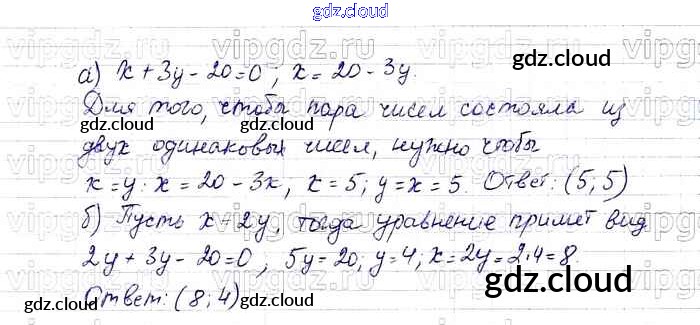 gdz.cloud
а) x + 3y - 20 = 0 ; x = 20 - 3y.
Для того, чтобы пара чисел состояла из
двух одинаковых чисел, нужно чтобы
x = y: x = 20 - 3x, x = 5; y = x = 5. Ответ: (5; 5)
б) Пусть x = 2y, тогда уравнение примет вид
2y + 3y - 20 = 0 ; 5y = 20; y = 4; x = 2y = 2·4 = 8.
Ответ: (8; 4)
gdz.cloud
gdz.cloud
gdz.cloud
gdz.cloud
gdz.cloud
gdz.cloud
gdz.cloud
gdz.cloud
gdz.cloud